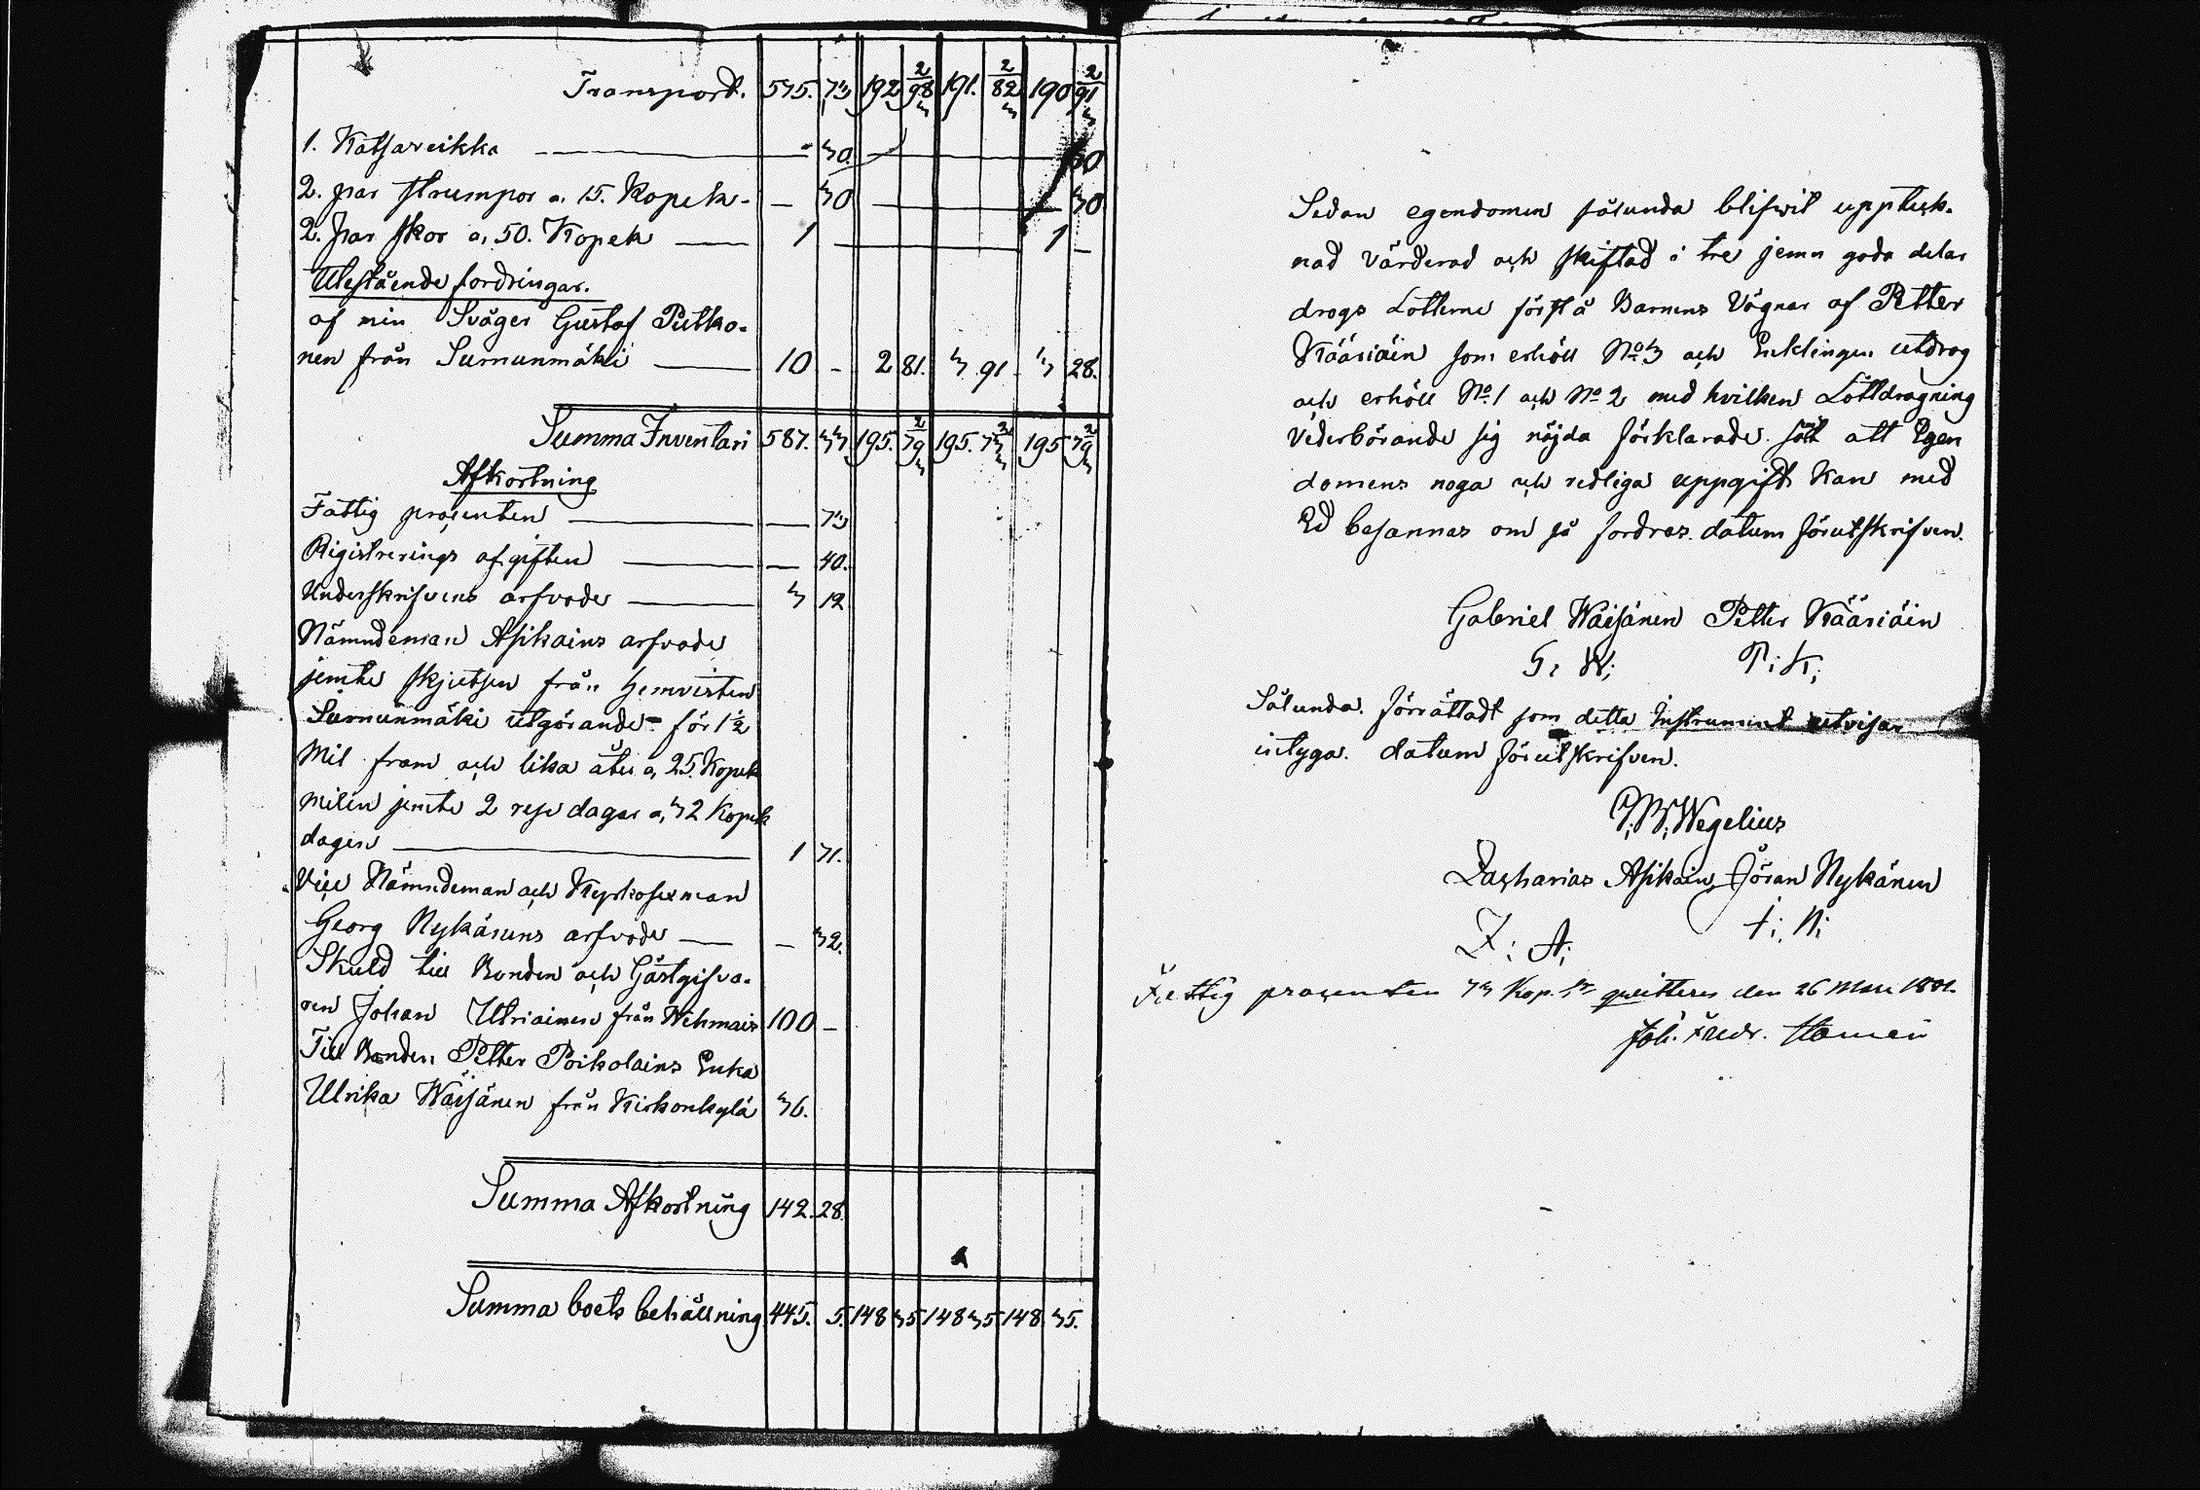 Transport. 575. 73 192 98 2/3 191. 82 2/3 190 91 2/3
1. Katsareikka — 30. — 30
2. par strumpor a. 15. Kopek - — 30 — 30
2. par skor a. 50. Kopek — 1 — 1 —
Utestående fordringar.
af min Svåger Gustaf Putko-
nen från Surnunmäki — 10 - 2 81. 3 91 3 28.
Summa Inventari 587. 33. 195. 79 2/3 195. 73 2/3 195 79 2/3
Afkortning
Fattig procenten — — 73
Rigistrerings afgiften — — 40.
Underskrifvens arfvode — 3 12
Nämndeman Asikains arfvode
jemte skjutsen från hemvisten
Surnunmäki utgörande för 1 1/2
Mil fram och lika åter a. 25. Kopek
Milen jemte 2 rese dagar a. 32 Kopek
dagen — 1 71.
Vice Nämndeman och Kyrkosexman
Georg Nykänens arfvode — — 32.
Skuld till Bonden och Gästgifva-
ren Johan Utriainen från Wehmais 100 -
Till Bonden Petter Poikolains Enka
Ulrika Wäisänen från Kirkonkylä 36.
Summa Afkortning 142. 28.
Summa boets behållning 445. 5. 148 35 148 35 148. 35.
Sedan egendomen sålunda blifvit uppteck-
nad värderad och skiftad i tre jemn goda delar
drogs Lotterne först å Barnens Vägnar af Petter
Kääriäin som erhöll No 3 och Enklingen utdrog
och erhöll No 1 och No 2 med hvilken Lottdragning
Vederbörande sig nöjda förklarade. samt att Egen
domens noga och redliga uppgift kan med
Ed besannas om så fordras. datum förutskrifven.
Gabriel Wäisänen Petter Kääriäin
G: W: P: K:
Sålunda. förrättadt som detta Instrument utvisar
intyga. datum förutskrifven.
Wegelius
Zacharias Asikain, Jöran Nykänen
Z: A: J: N:
Fattig procenten 73 Kop. Sr quitteres den 26 Mars
Joh. Fredr.